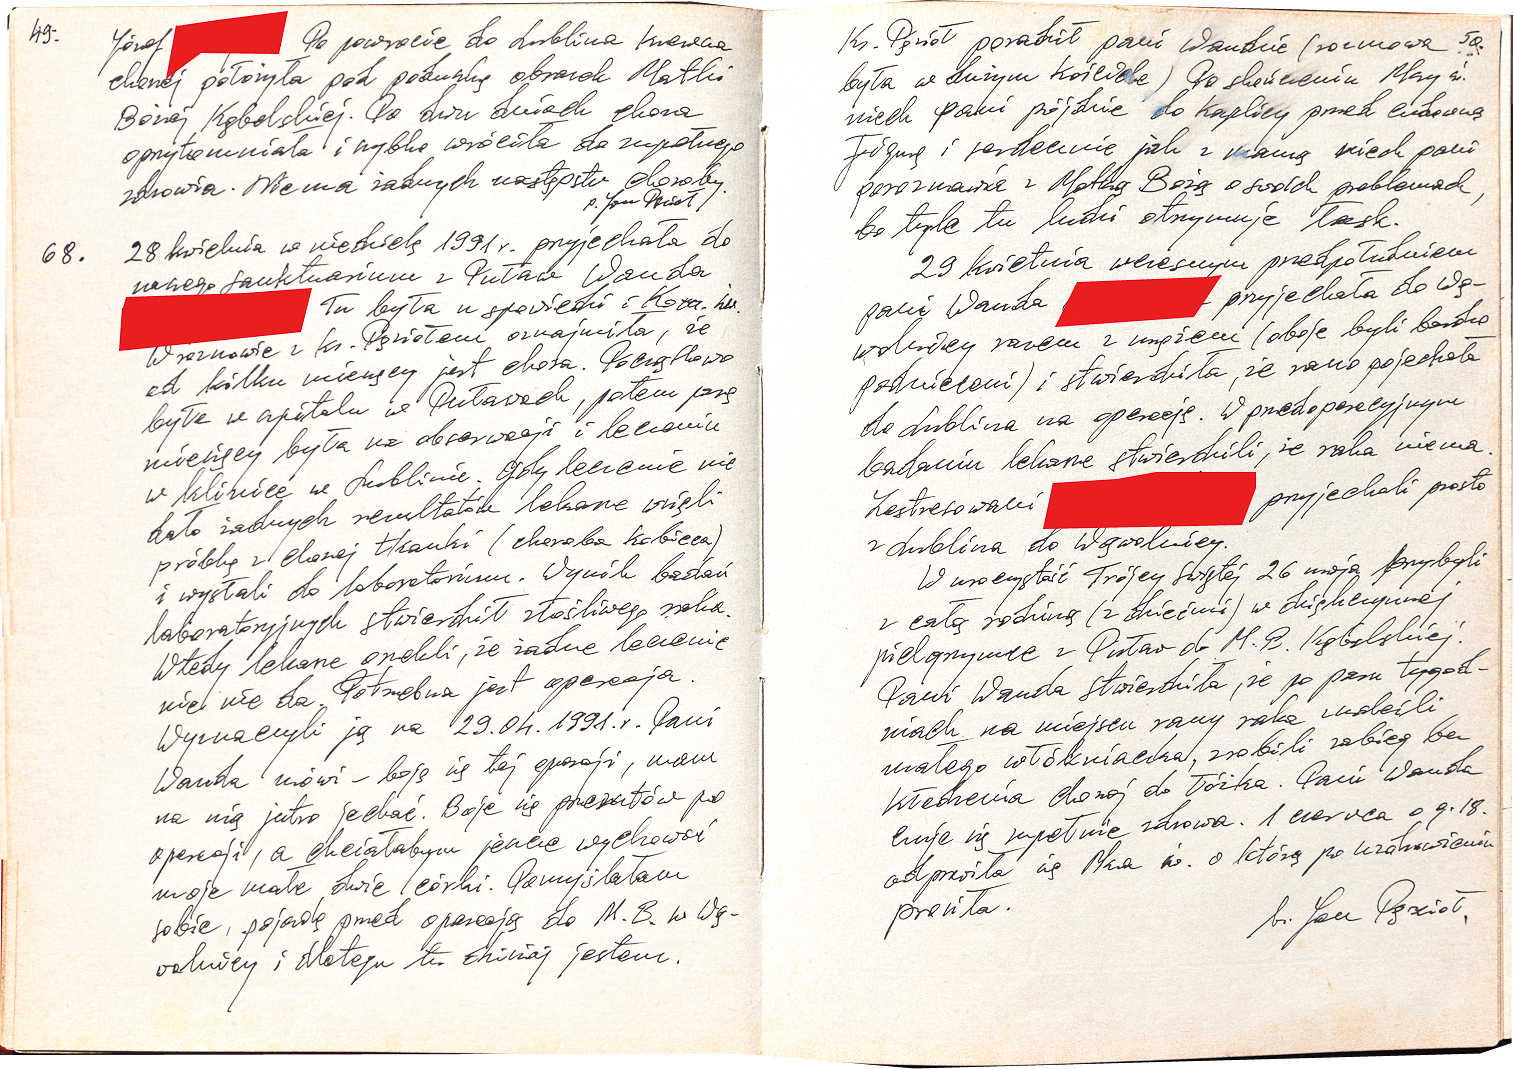 49.
Józef Po powrocie do Lublina krewna
chorej położyła pod poduszkę obrazek Matki
Bożej Kębelskiej. Po dwu dniach chora
oprzytomniała i szybko wróciła do zupełnego
zdrowia. Niema żadnych następstw choroby.
68. 28 kwietnia w niedzielę 1991 r. przyjechała do
naszego Sanktuarium z Puław Wanda
Tu była u spowiedzi i Kom. św.
W rozmowie z ks. Pęziołem oznajmiła, że
od kilku miesięcy jest chora. Początkowo
była w szpitalu w Puławach, potem parę
miesięcy była na obserwacji i leczeniu
w klinice w Lublinie. Gdy leczenie nie
dało żadnych rezultatów lekarze wzięli
próbkę z chorej tkanki (choroba kobieca)
i wysłali do laboratorium. Wynik badań
laboratoryjnych stwierdził złośliwego raka.
Wtedy lekarze orzekli, że żadne leczenie
nic nie da. Potrzebna jest operacja.
Wyznaczyli ją na 29.04.1991.r. Pani
Wanda mówi - boję się tej operacji, mam
na nią jutro jechać. Boję się przerzutów po
operacji, a chciałabym jeszcze wychować
moje małe dwie córki. Pomyślałam
sobie, pojadę przed operacją do M.B. w Wą-
wolnicy i dlatego tu dzisiaj jestem.
50.
Ks. Pęzioł poradził pani Wandzie (rozmowa
była w dużym Kościele) Po skończeniu Mszy św.
niech pani pójdzie do Kaplicy przed cudowną
Figurę i serdecznie jak z mamą niech pani
porozmawia z Matką Bożą o swoich problemach,
bo tyle tu ludzi otrzymuje łask.
29 kwietnia wczesnym przedpołudniem
pani Wanda - przyjechała do Wą-
wolnicy razem z mężem (oboje byli bardzo
podnieceni) i stwierdziła, że rano pojechała
do Lublina na operację. W przedoperacyjnym
badaniu lekarze stwierdzili, że raka niema.
Zestresowani przyjechali prosto
z Lublina do Wąwolnicy.
W uroczystość Trójcy Świętej 26 maja przybyli
z całą rodziną (z dziećmi) w dziękczynnej
pielgrzymce z Puław do M.B. Kębelskiej.
Pani Wanda stwierdziła, że po paru tygod-
niach na miejscu rany raka znaleźli
małego włókniaczka, zrobili zabieg bez
kładzenia chorej do łóżka. Pani Wanda
czuje się zupełnie zdrowa. 1 czerwca o g. 18.
odprawiła się Msza św. o którą po uzdrowieniu
prosiła.
Jan Pęzioł.